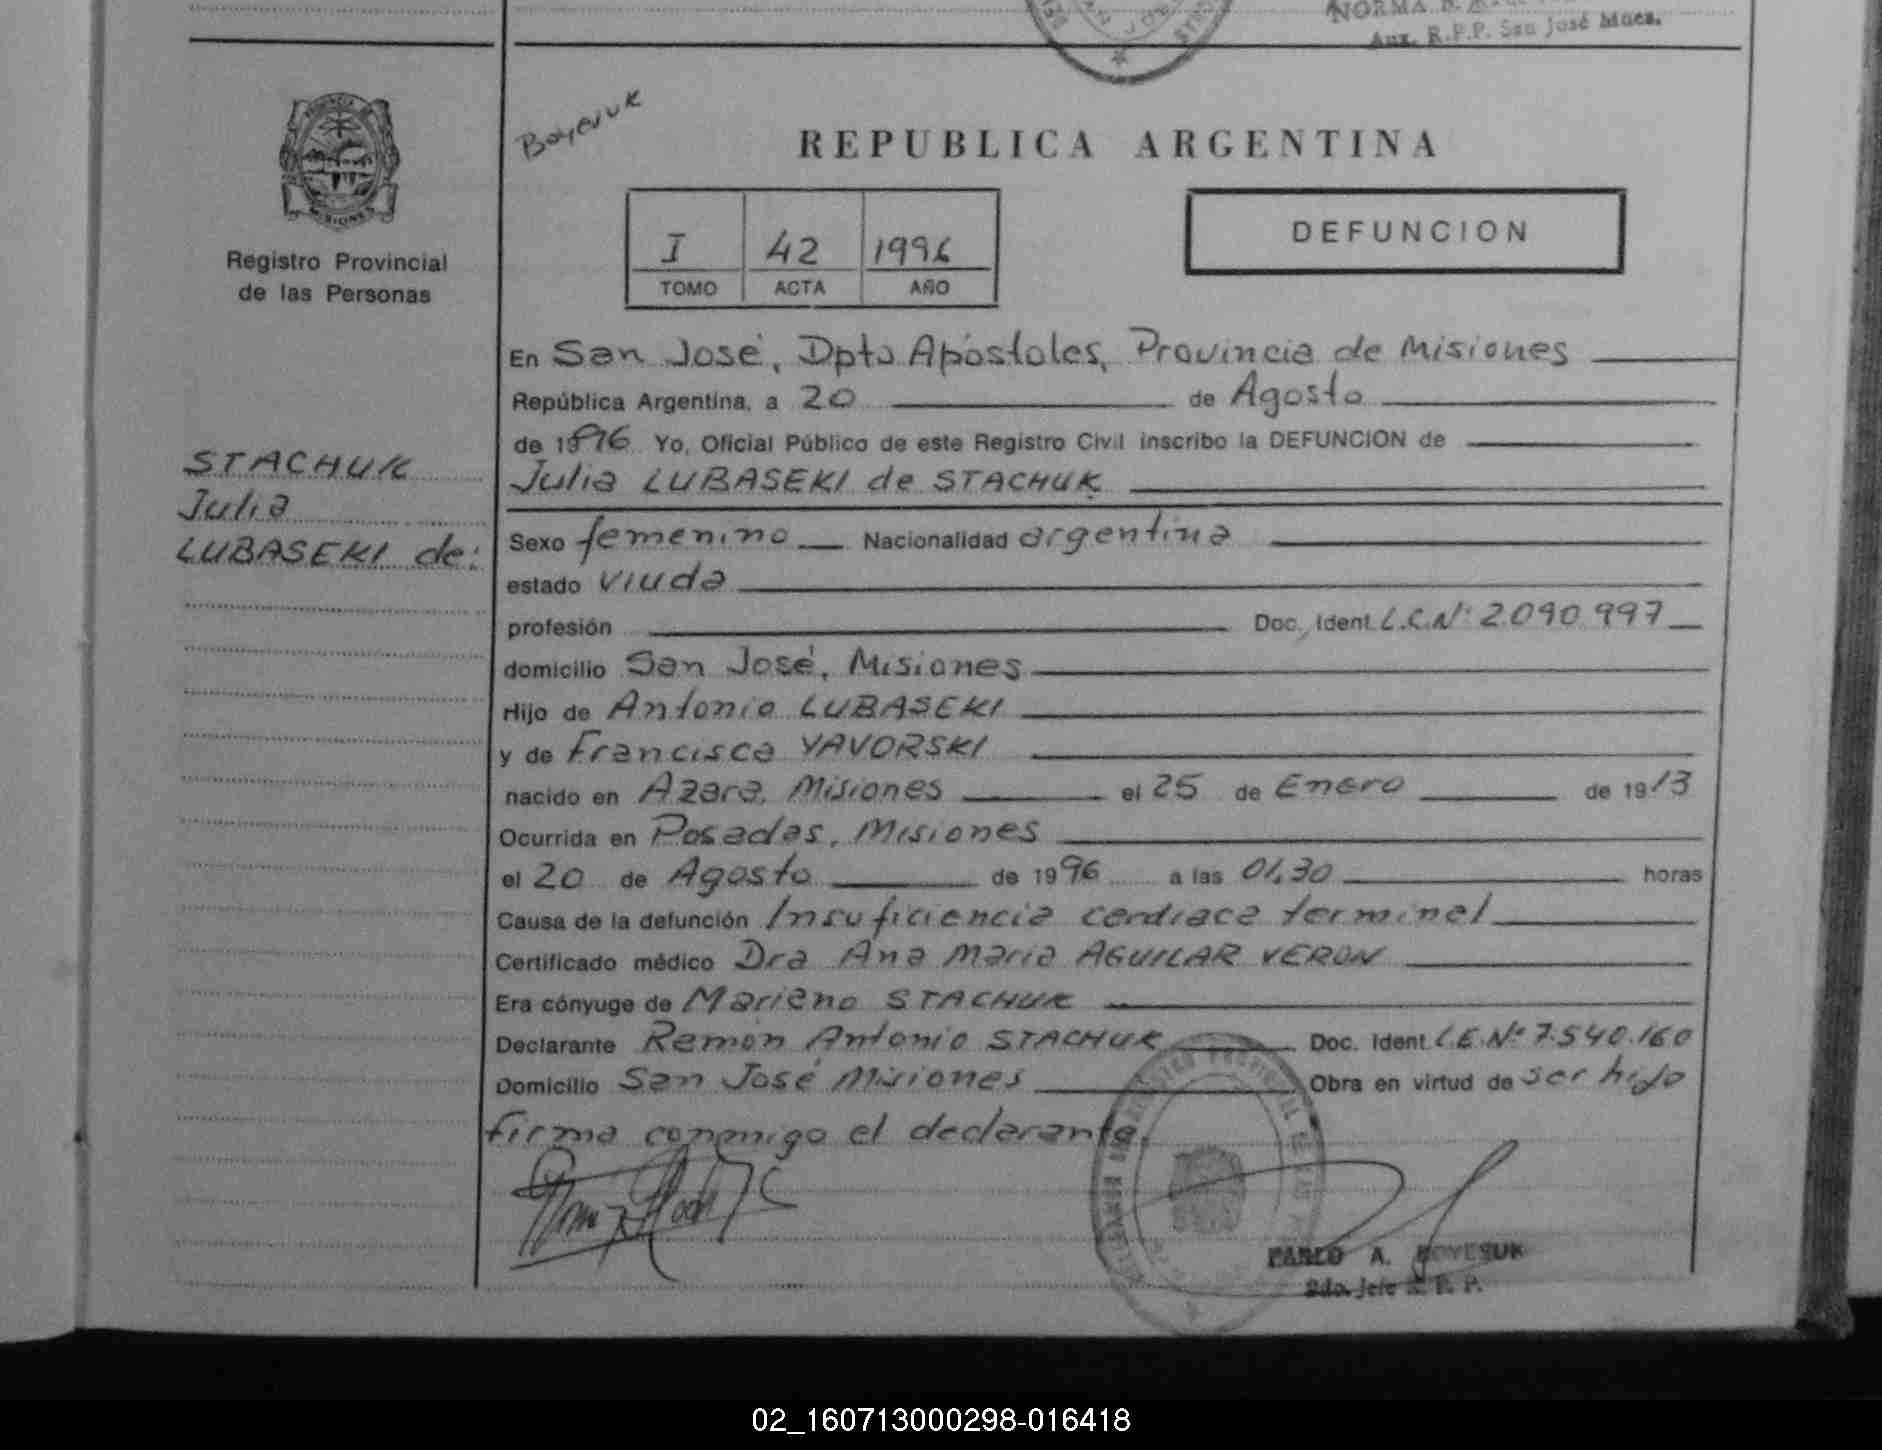 NORMA B.
Aux. R.P.P. San José Mnes.
PROVINCIA DE
MISIONES
Registro Provincial
de las Personas
STACHUK
Julia
LUBASEKI de:
Boyesuk
REPUBLICA ARGENTINA
I 42 1996
TOMO ACTA AÑO
DEFUNCION
En San José, Dpto Apóstoles, Provincia de Misiones
República Argentina, a 20 de Agosto
de 1996 Yo, Oficial Público de este Registro Civil inscribo la DEFUNCION de
Julia LUBASEKI de STACHUK
Sexo femenino Nacionalidad argentina
estado viuda
profesión Doc. Ident L.C.Nº 2.090.997
domicilio San José, Misiones
Hijo de Antonio LUBASEKI
y de Francisca YAVORSKI
nacido en Azara, Misiones el 25 de Enero de 1913
Ocurrida en Posadas, Misiones
el 20 de Agosto de 1996 a las 01,30 horas
Causa de la defunción Insuficiencia cardiaca terminal
Certificado médico Dra Ana Maria AGUILAR VERON
Era cónyuge de Mariano STACHUK
Declarante Ramón Antonio STACHUK Doc. Ident L.E.Nº 7.540.160
Domicilio San José Misiones Obra en virtud de ser hijo
firma conmigo el declarante.
PABLO A. BOYESUK
2do. Jefe R. P. P.
02_160713000298-016418